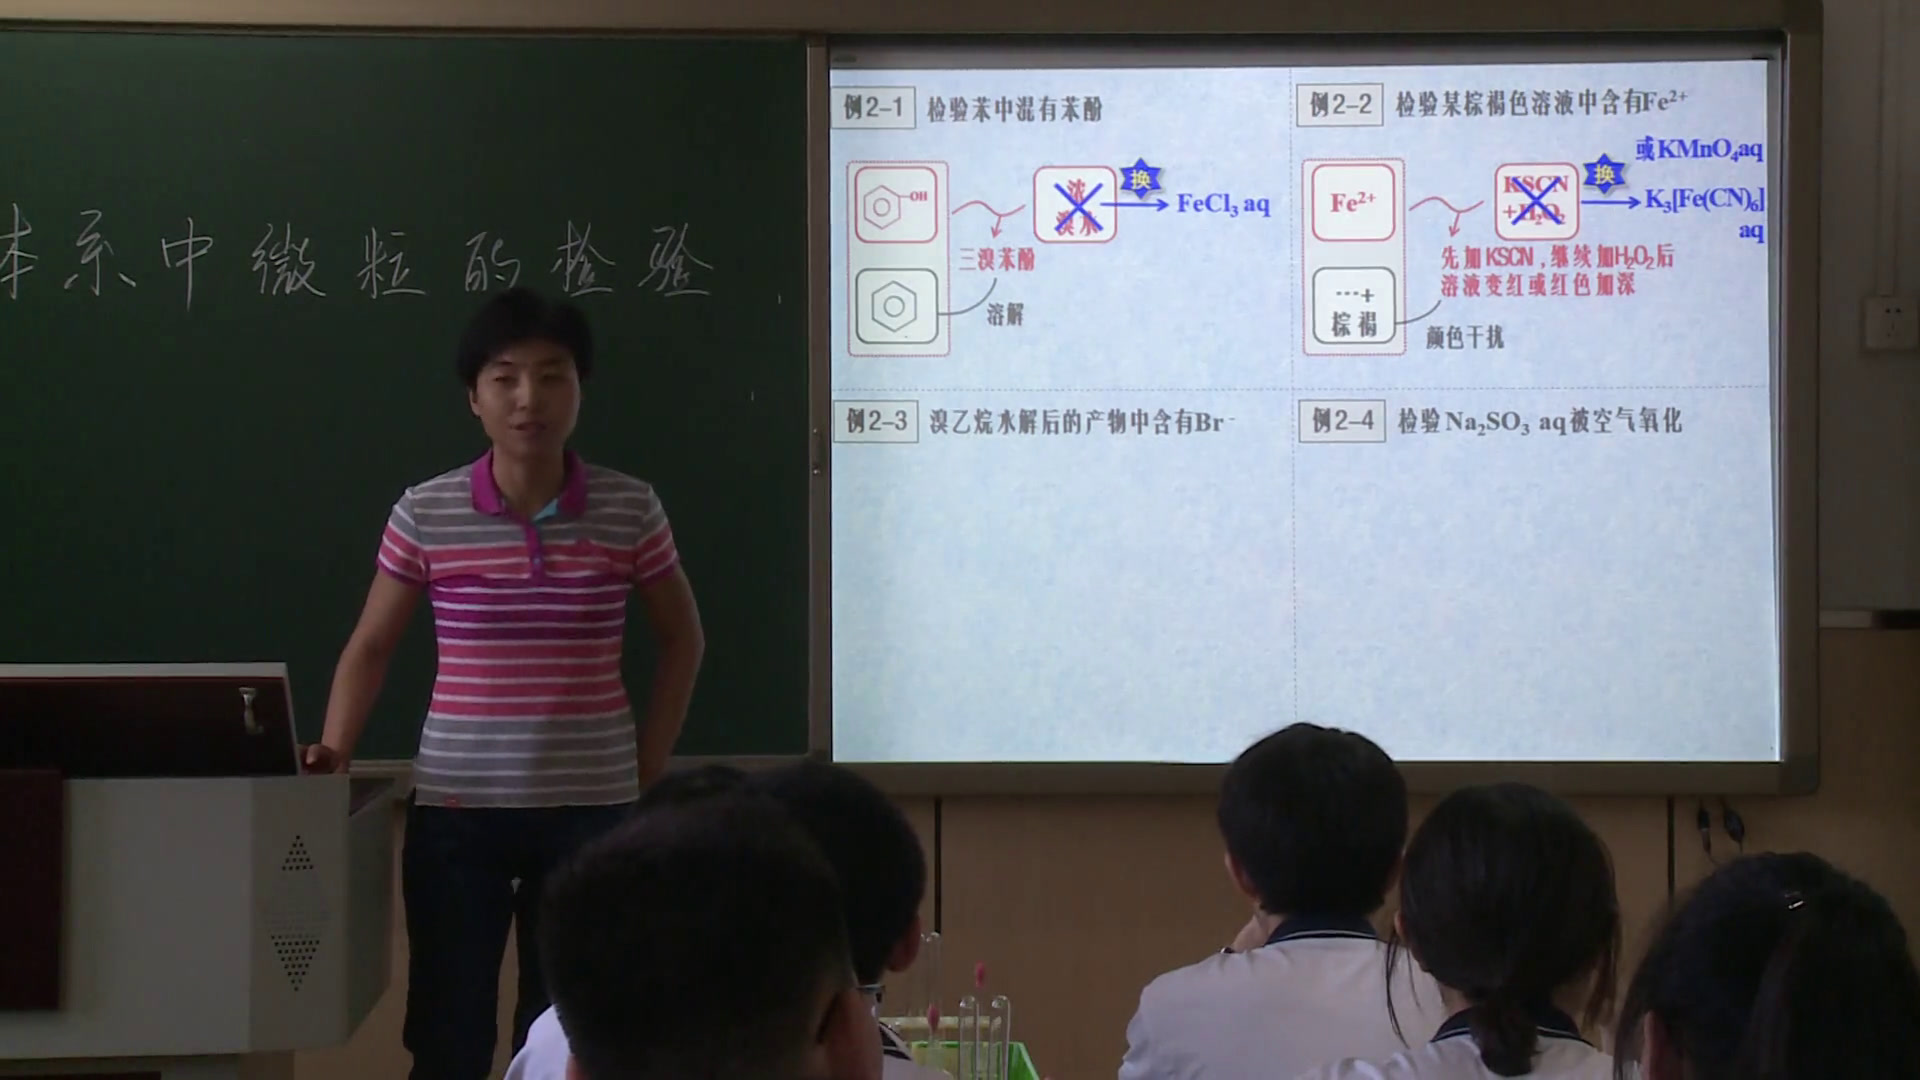 本系中微粒的检验
例2-1 检验苯中混有苯酚
OH
浓
溴水
换
FeCl₃ aq
三溴苯酚
溶解
例2-2 检验某棕褐色溶液中含有Fe²⁺
或KMnO₄aq
Fe²⁺
KSCN
+H₂O₂
换
K₃[Fe(CN)₆]
aq
先加KSCN,继续加H₂O₂后
溶液变红或红色加深
…+
棕褐
颜色干扰
例2-3 溴乙烷水解后的产物中含有Br⁻
例2-4 检验Na₂SO₃ aq被空气氧化